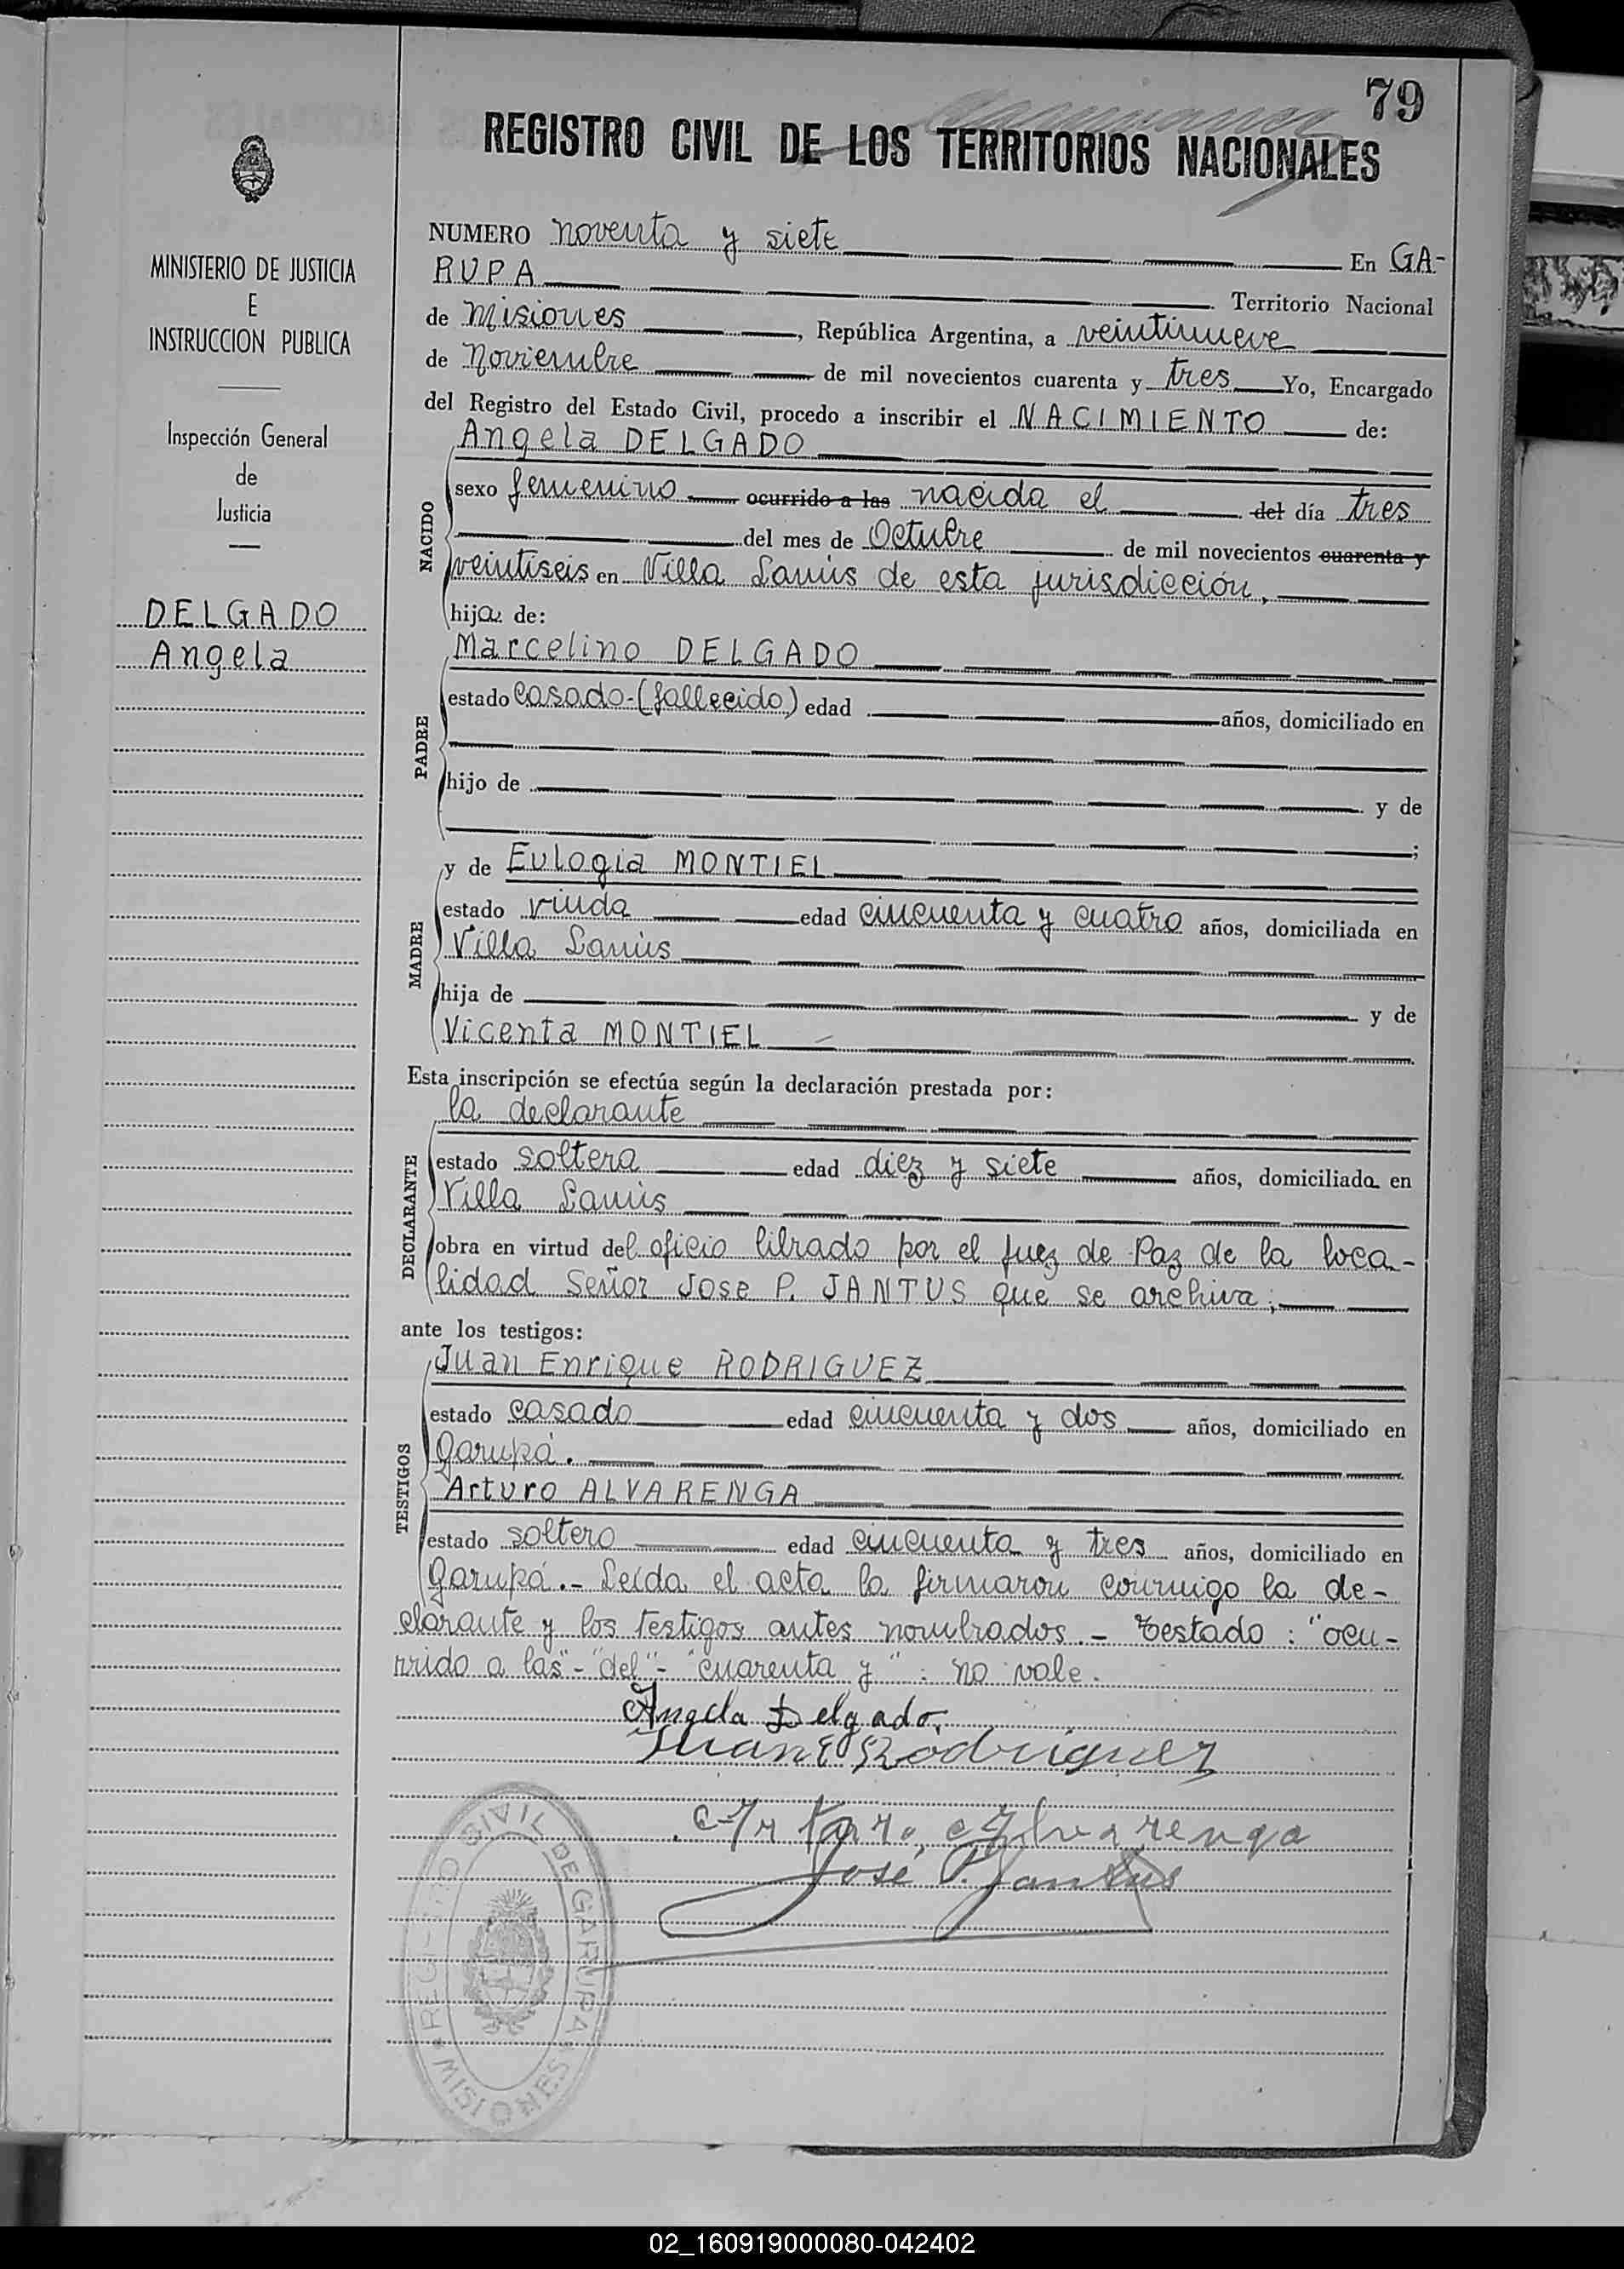 79
REGISTRO CIVIL DE LOS TERRITORIOS NACIONALES
MINISTERIO DE JUSTICIA
E
INSTRUCCION PUBLICA
Inspección General
de
Justicia
DELGADO
Angela
NUMERO noventa y siete En GA-
RUPA Territorio Nacional
de Misiones, República Argentina, a veintinueve
de Noviembre de mil novecientos cuarenta y tres Yo, Encargado
del Registro del Estado Civil, procedo a inscribir el NACIMIENTO de:
NACIDO
Angela DELGADO
sexo femenino ocurrido a las nacida el del día tres
del mes de Octubre de mil novecientos cuarenta y
veintiseis en Villa Lanús de esta jurisdicción,
hija de:
PADRE
Marcelino DELGADO
estado casado-(fallecido) edad años, domiciliado en
hijo de y de
;
MADRE
y de Eulogia MONTIEL
estado viuda edad cincuenta y cuatro años, domiciliada en
Villa Lanús
hija de y de
Vicenta MONTIEL
Esta inscripción se efectúa según la declaración prestada por:
DECLARANTE
la declarante
estado soltera edad diez y siete años, domiciliada en
Villa Lanús
obra en virtud del oficio librado por el Juez de Paz de la loca-
lidad Señor Jose P. JANTUS que se archiva;
ante los testigos:
TESTIGOS
Juan Enrique RODRIGUEZ
estado casado edad cincuenta y dos años, domiciliado en
Garupá.
Arturo ALVARENGA
estado soltero edad cincuenta y tres años, domiciliado en
Garupá.- Leída el acta la firmaron conmigo la de-
clarante y los testigos antes nombrados.- Testado: "ocu-
rrido a las"-"del"-"cuarenta y": no vale.
Angela Delgado.
Juan E Rodriguez
Arturo Alvarenga
José P. Jantus
REGISTRO CIVIL DE GARUPA
MISIONES
02_160919000080-042402